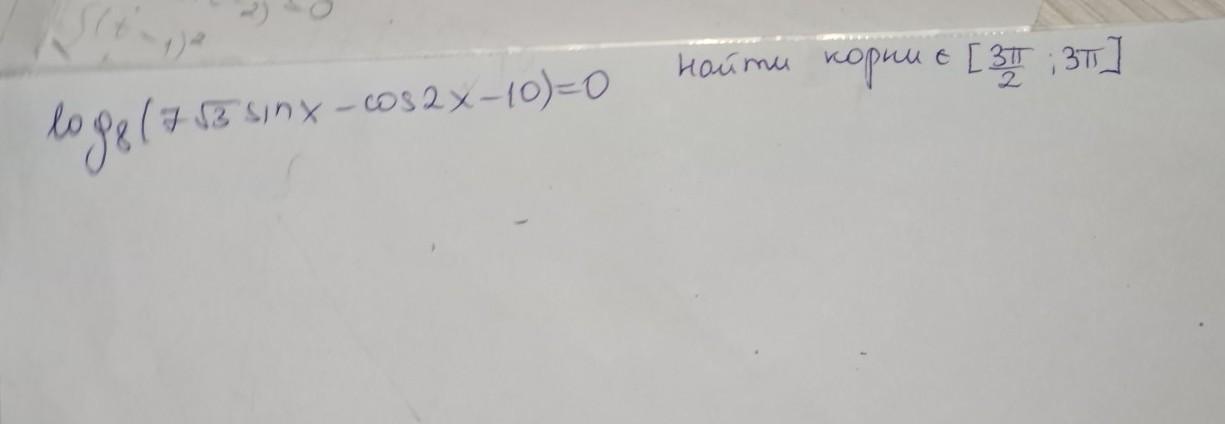 2) = 0
- 1)²
log₈(7√3 sinx - cos2x - 10) = 0 Найти корни ∈ [3π/2 ; 3π]